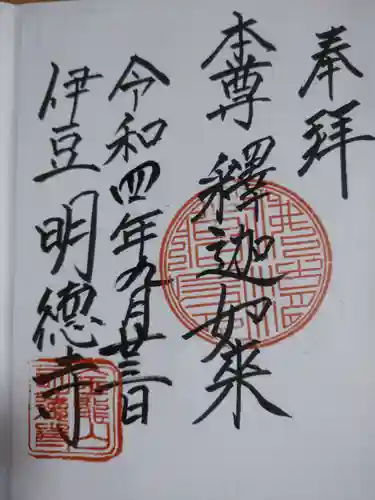 奉拜
本尊 釋迦如來
令和四年九月廿三日
伊豆 明徳寺